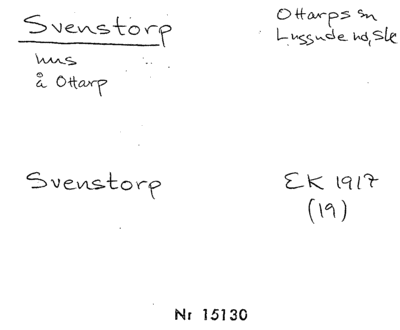 Svenstorp
hus
å Ottarp
Ottarps sn
Luggude hd, Sk
Svenstorp
EK 1917
(19)
Nr 15130